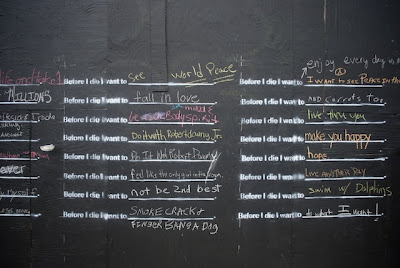 enjoy every day
life and take 1
Before I die I want to see World Peace
Before I die I want to I want to see Peace in the
MILLIONS
Before I die I want to fall in love
AND CARROTS TOO
Before I die I want to
Before I die I want to live thru you
Before I die I want to Do it with Robert Downy Jr.
Before I die I want to make you happy
Before I die I want to Do It Not Robert Downy
Before I die I want to hope
ever
Before I die I want to Feel like the only girl in the
Before I die I want to LIVE ANOTHER DAY
myself
Before I die I want to not be 2nd best
Before I die I want to swim w/ Dolphins
Before I die I want to SMOKE CRACK
Before I die I want to do what I want!
FINGER BANG A DOG